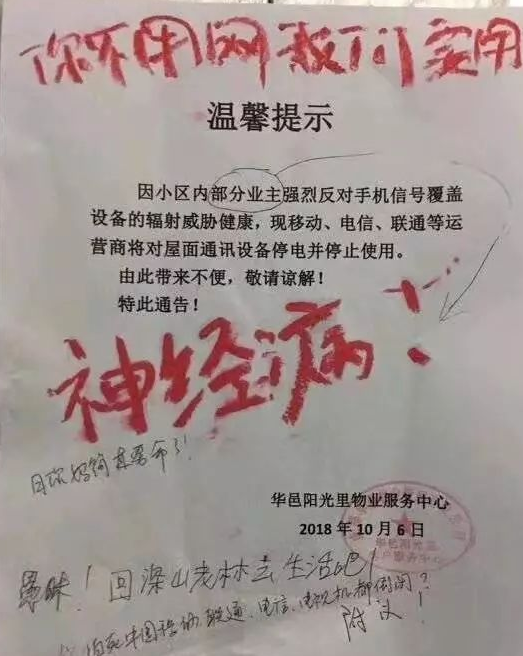 你不用网我们家用
温馨提示
因小区内部分业主强烈反对手机信号覆盖
设备的辐射威胁健康，现移动、电信、联通等运
营商将对屋面通讯设备停电并停止使用。
由此带来不便，敬请谅解！
特此通告！
神经病！
华邑阳光里物业服务中心
2018年10月6日
愚昧！回深山老林去生活吧！
中国移动 联通、电信、电视机都倒闭？
附议！